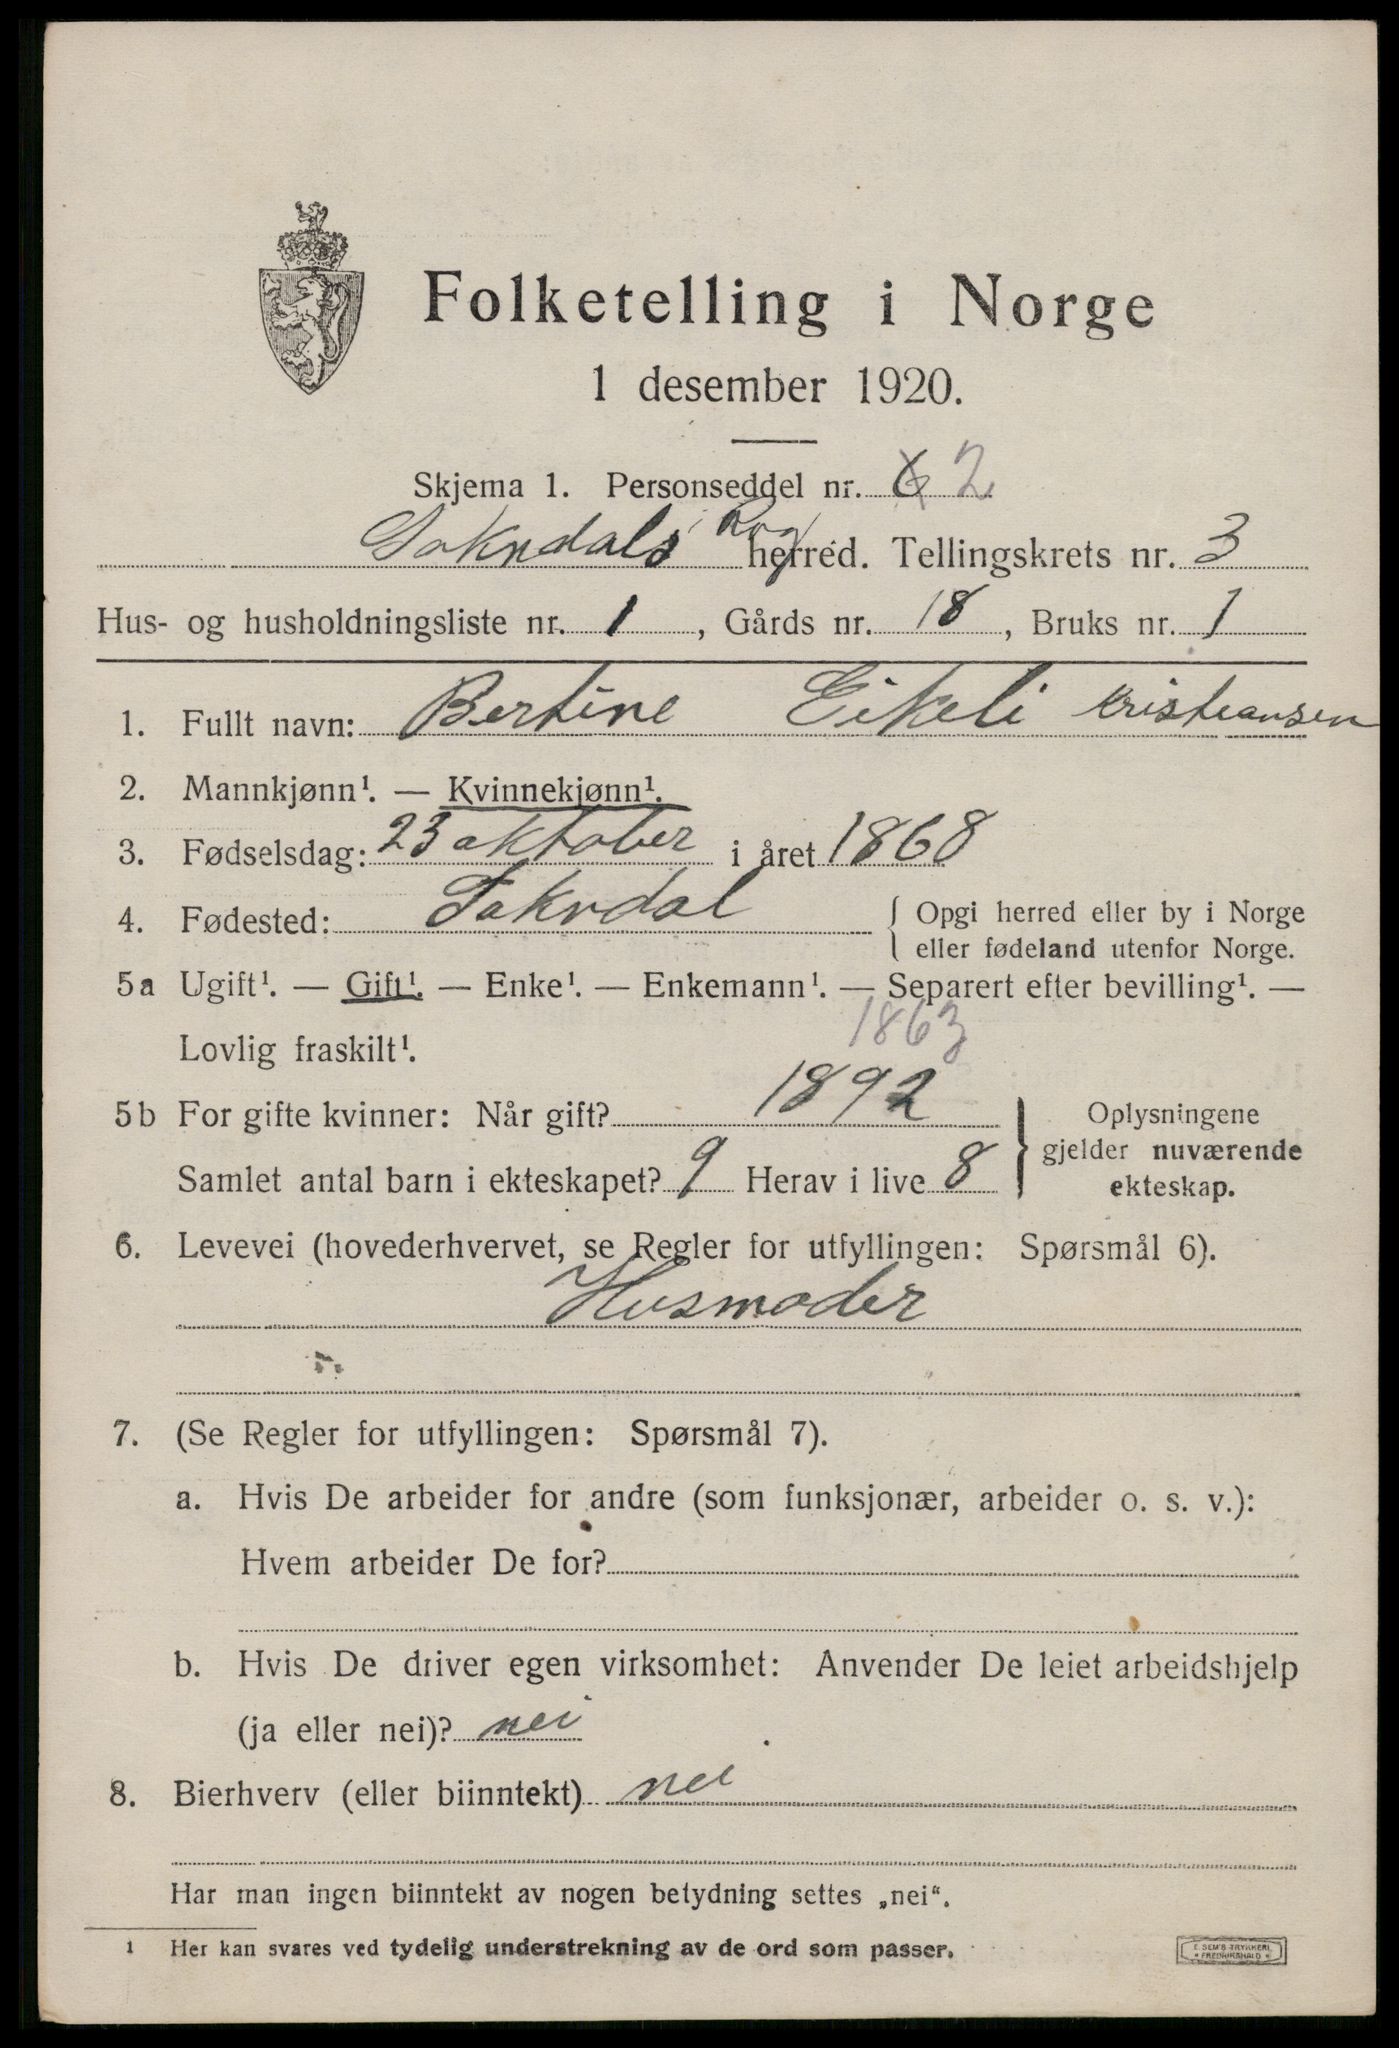 Folketelling i Norge
1 desember 1920.
Skjema 1. Personseddel nr. 6 2
Sokndals Rog herred. Tellingskrets nr. 3
Hus- og husholdningsliste nr. 1, Gårds nr. 18, Bruks nr. 1
1. Fullt navn: Bertine Eikeli Kristiansen
2. Mannkjønn¹. — Kvinnekjønn¹.
3. Fødselsdag: 23 oktober i året 1868
4. Fødested: Sokndal { Opgi herred eller by i Norge
eller fødeland utenfor Norge.
5a Ugift¹. — Gift¹. — Enke¹. — Enkemann¹. — Separert efter bevilling¹. —
Lovlig fraskilt¹. 1863
5b For gifte kvinner: Når gift? 1892 } Oplysningene
gjelder nuværende
Samlet antal barn i ekteskapet? 9 Herav i live 8 ekteskap.
6. Levevei (hovederhvervet, se Regler for utfyllingen: Spørsmål 6).
Husmoder
7. (Se Regler for utfyllingen: Spørsmål 7).
a. Hvis De arbeider for andre (som funksjonær, arbeider o. s. v.):
Hvem arbeider De for?
b. Hvis De driver egen virksomhet: Anvender De leiet arbeidshjelp
(ja eller nei)? nei
8. Bierhverv (eller biinntekt) nei
Har man ingen biinntekt av nogen betydning settes „nei“.
1 Her kan svares ved tydelig understrekning av de ord som passer.
E. SEM'S TRYKKERI
* FREDRIKSHALD *